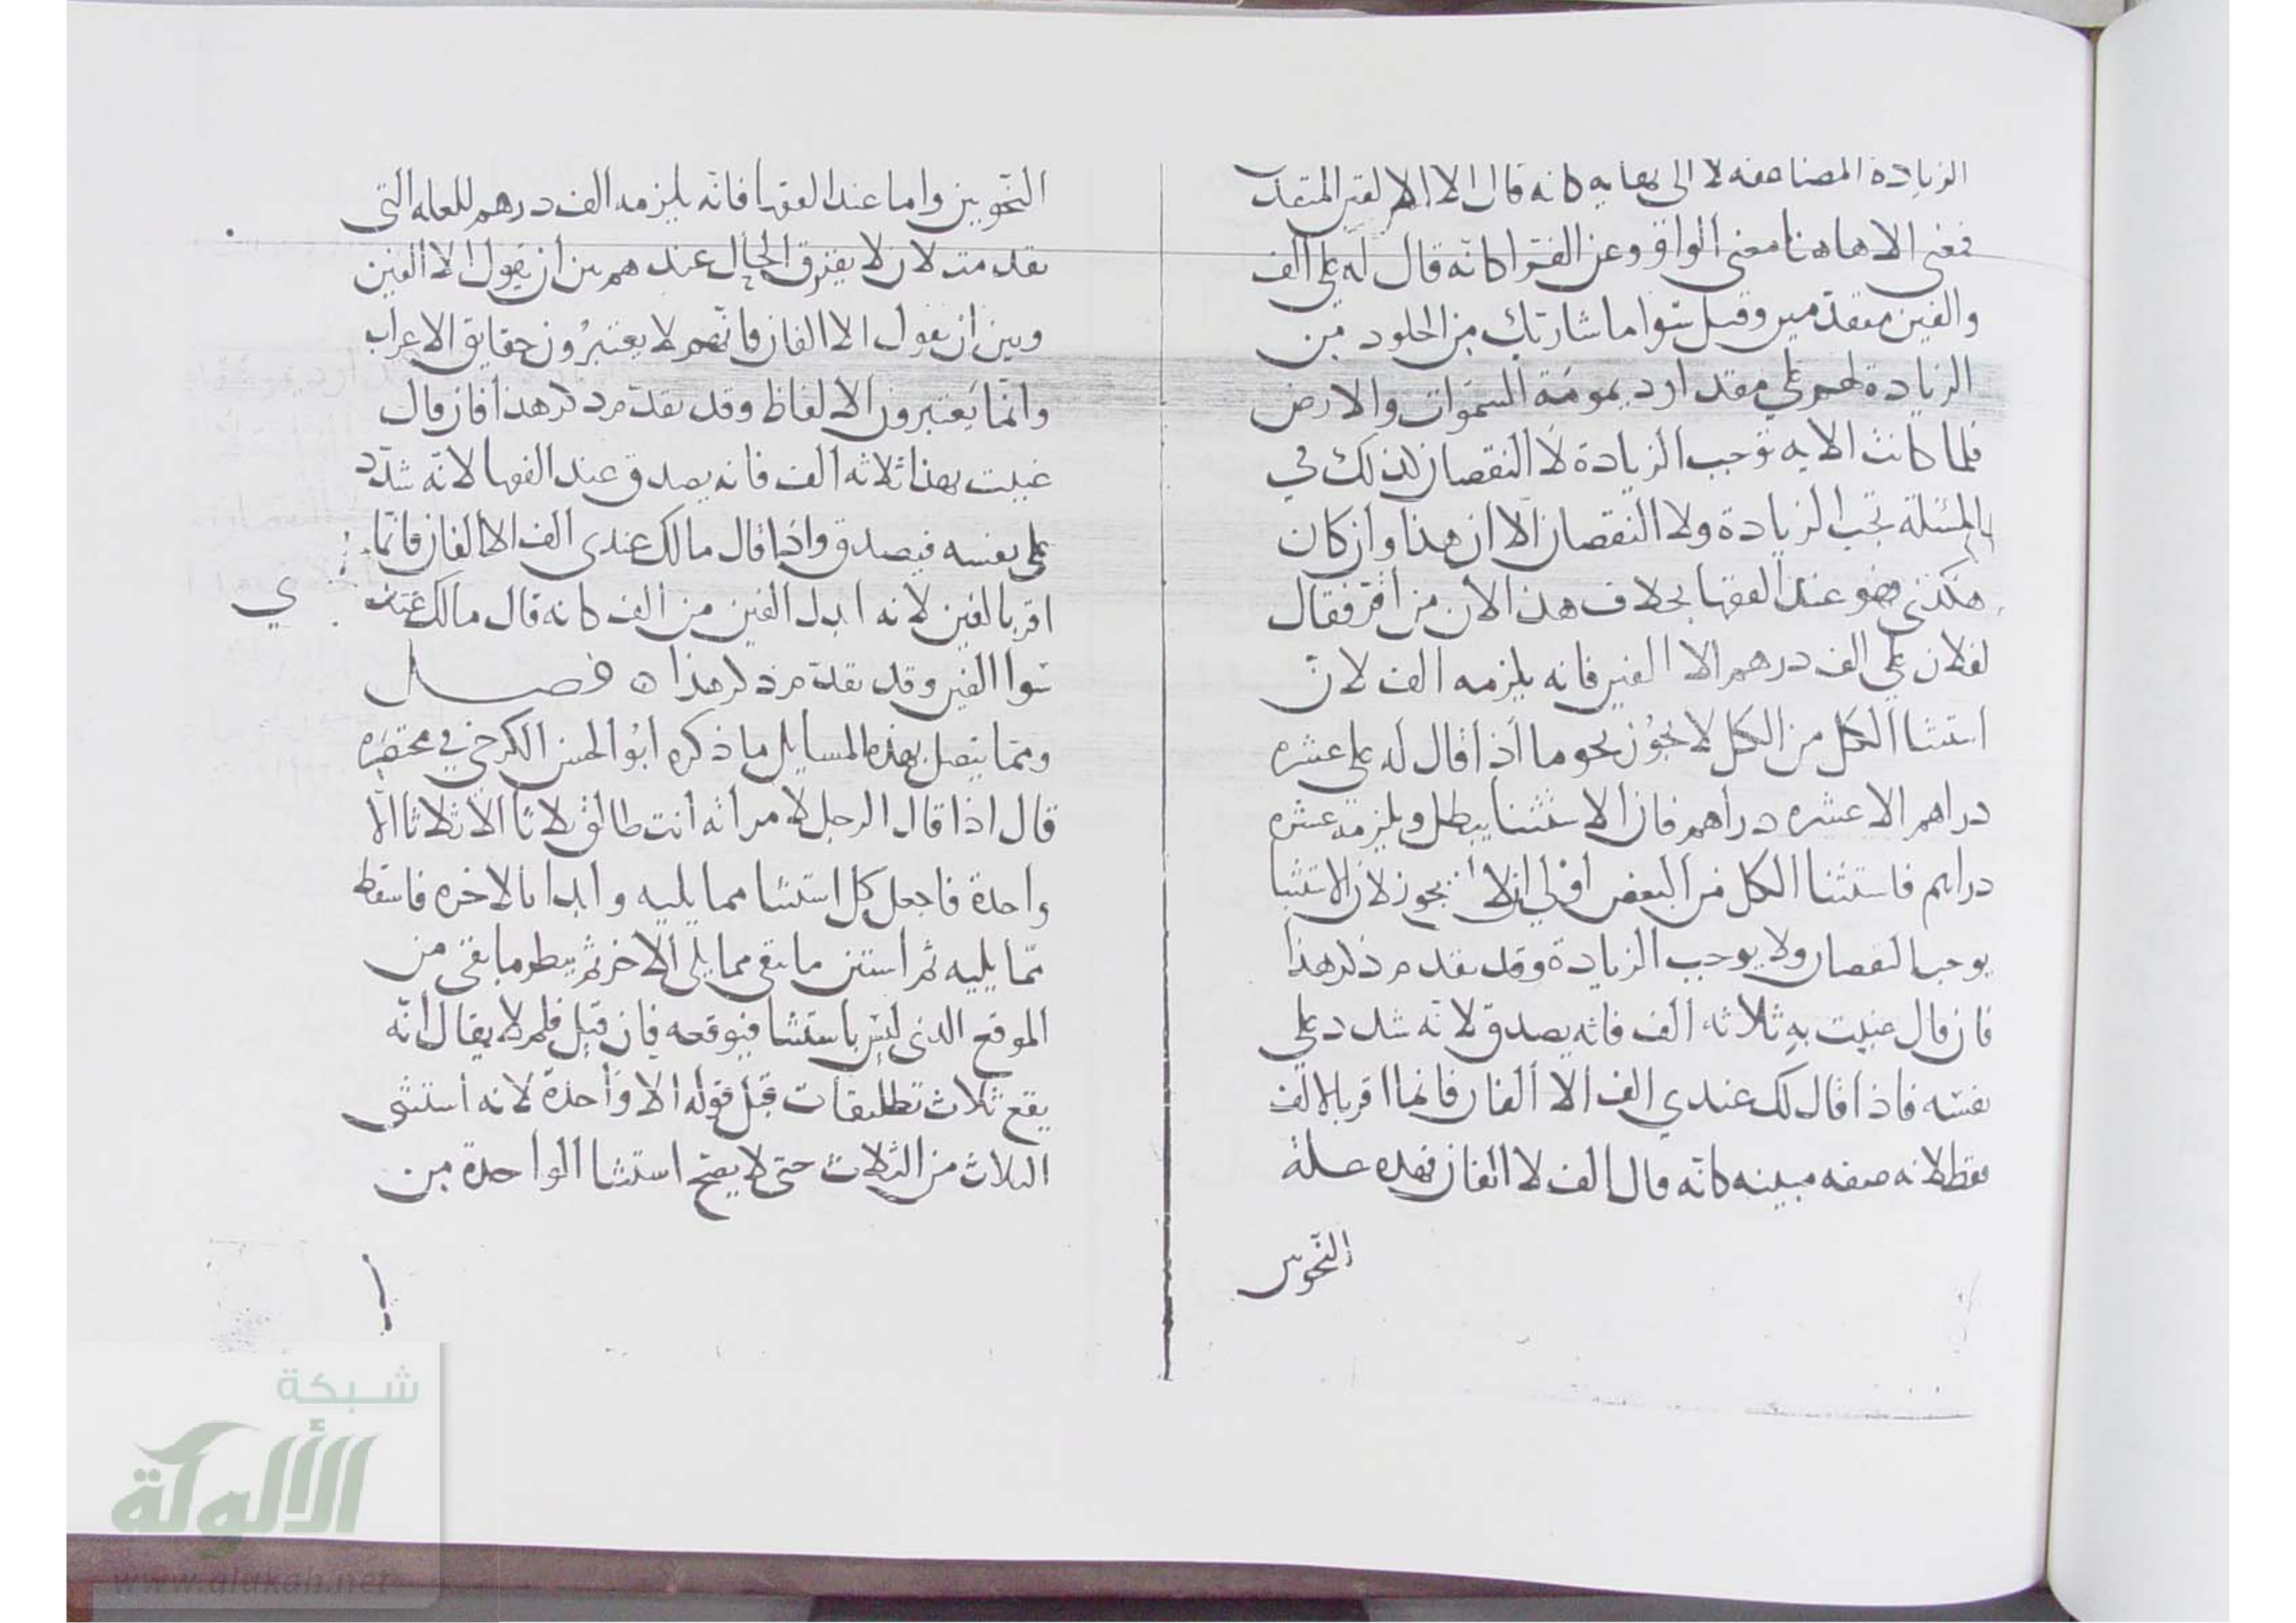 الزيادة المضاعفه لا الى نهايه كانه قال الا الالفين المتقد
فمعنى الا هاهنا معنى الواو وعن الفرا كانه قال له علي الف
والفين متقدمين وقيل سوا ما شا ربك من الخلود من
الزيادة لهم على مقدار ديمومة السموات والارض
فلما كانت الايه توجب الزيادة لا النقصان كذلك في
المسئلة تجب الزيادة ولا النقصان الا ان هذا وان كان
هكذى فهو عند الفقها بخلاف هذا لان من اقر فقال
لفلان علي الف درهم الا الفين فانه يلزمه الف لان
استثنا الكل من الكل لا يجوز نحو ما اذا قال له على عشره
دراهم الا عشره دراهم فان الاستثنا يبطل ويلزمه عشره
دراهم فاستثنا الكل من البعض اولى ان لا يجوز لان الاستثنا
يوجب النقصان ولا يوجب الزيادة وقد تقدم ذكر هذا
فان قال عنيت به ثلاثه الف فانه يصدق لانه شدد على
نفسه فاذا قال لك عندي الف الا الفان فانما اقر بالالف
فقط لانه صفه مبينه كانه قال الف لا الفان فهذه علة
النحويين
النحويين واما عند الفقها فانه يلزمه الف درهم للعله التي
تقدمت لان لا يفترق الحال عندهم بين ان يقول الا الفين
وبين ان يقول الا الفان فانهم لا يعتبرون حقايق الاعراب
وانما يعتبرون الالفاظ وقد تقدم ذكر هذا فان قال
عنيت بهذا ثلاثه الف فانه يصدق عند الفقها لانه شدد
على نفسه فيصدق واذا قال مالك عندى الف الا الفان فانما
اقر بالفين لانه ابدل الفين من الف كانه قال مالك عند
ي
سوا الفين وقد تقدم ذكر هذا ه فصل
ومما يتصل بهذه المسايل ما ذكره ابو الحسن الكرخي في مختصره
قال اذا قال الرجل لامراته انت طالق ثلاثا الا ثلاثا الا
واحدة فاجعل كل استثنا مما يليه وابدا بالاخره فاسقط
مما يليه ثم استثن ما بقى مما يلي الاخر ثم ينظر ما بقى من
الموقع الذي ليس باستثنا فيوقعه فان قيل فلم لا يقال انه
يقع ثلاث تطليقات قبل قوله الا واحدة لانه استثنى
الثلاث من الثلاث حتى لا يصح استثنا الواحدة من
شبكة
الألوكة
www.alukah.net